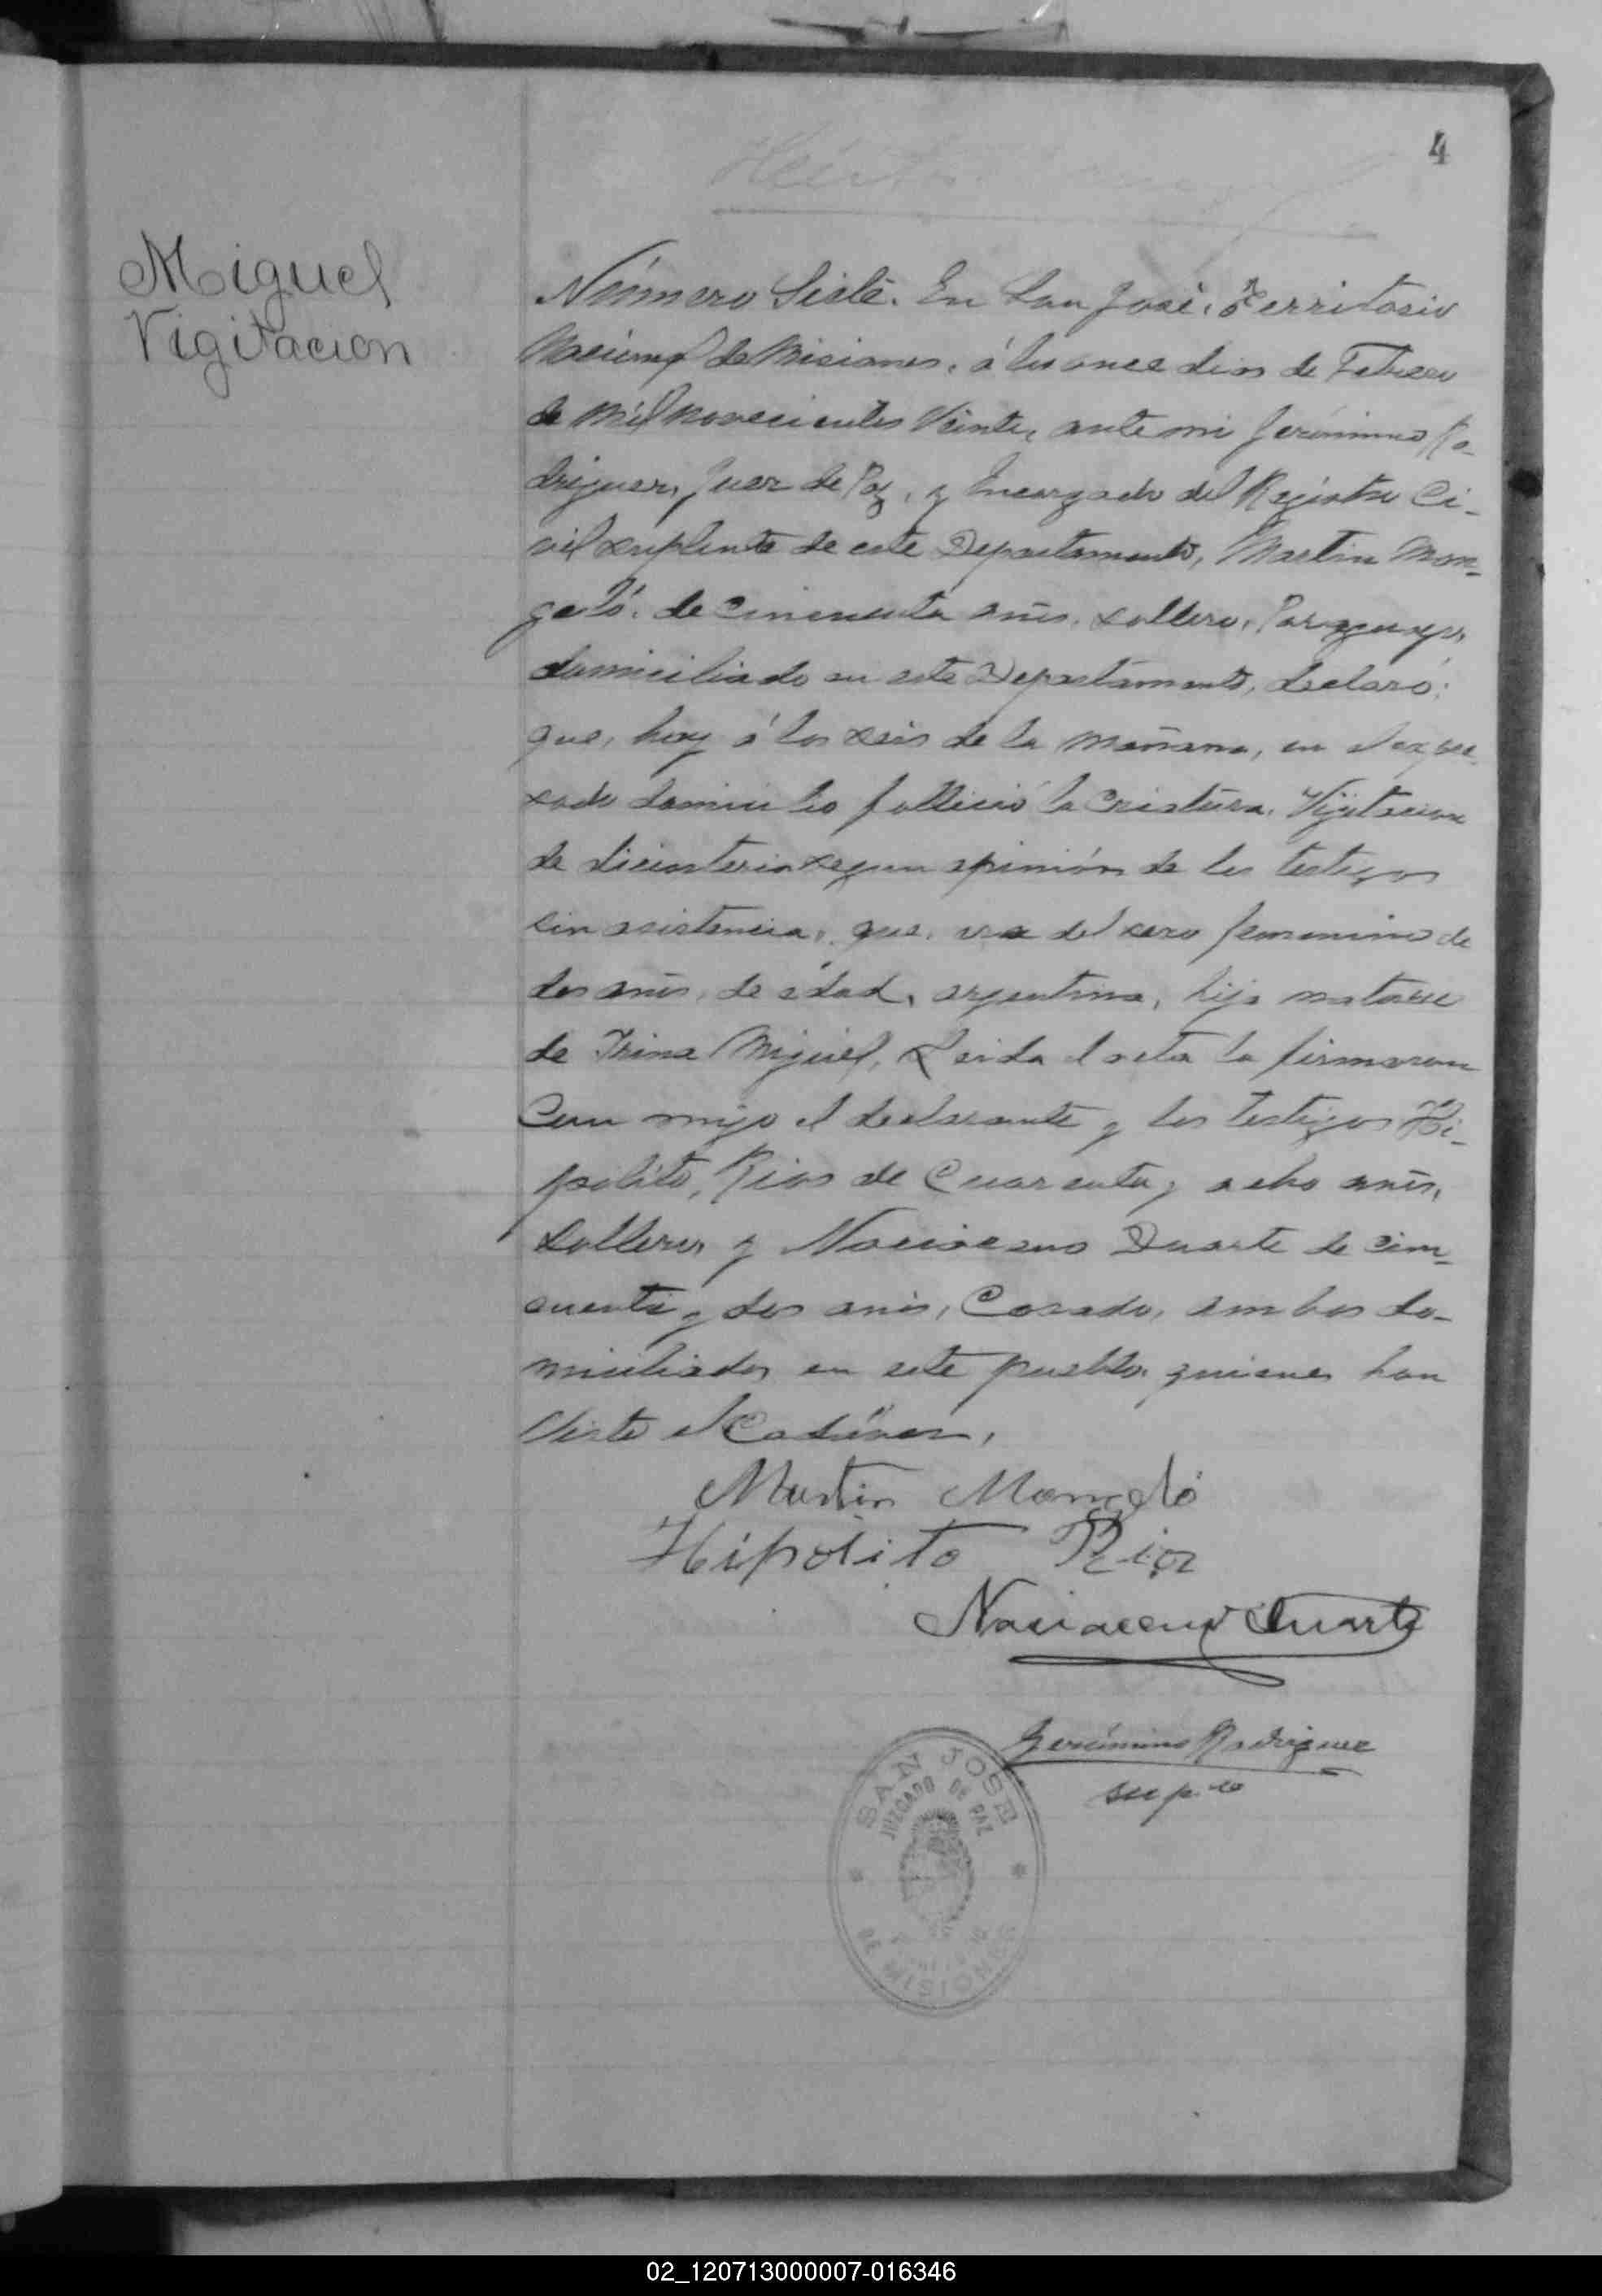 4
Miguel
Vigitacion
Número Siete. En San José, Territorio
Nacional de Misiones, á los once dias de Febrero
de Mil novecientos Veinte, ante mi Jerónimo Ro-
driguez, Juez de Paz, y Encargado del Registro Ci-
vil suplente de este Departamento, Martin Mon-
geló, de Cincuenta años, soltero, Paraguayo,
domiciliado en este Departamento, declaró:
que, hoy á las seis de la mañana, en el expre-
sado domicilio falleció la Criatura, Vijitacion
de dicinteria segun opinión de los testigos
sin asistencia, que, era del sexo femenino de
dos años, de edad, argentina, hija natural
de Miguel, Leida el acta la firmaron
Con migo el declarante y los testigos Hi-
polito, Rios de Cuarenta y ocho años,
Soltero, y Naciaceno Duarte de cin-
cuenta y dos años, Casado, ambos do-
miciliados en este pueblo, quienes han
Visto el Cadáver,
Martin Mongeló
Hipolito Rioz
Naciaceno Duarte
Gerónimo Rodriguez
sup.te
SAN JOSE
JUZGADO DE PAZ
DE MISIONES
02_120713000007-016346